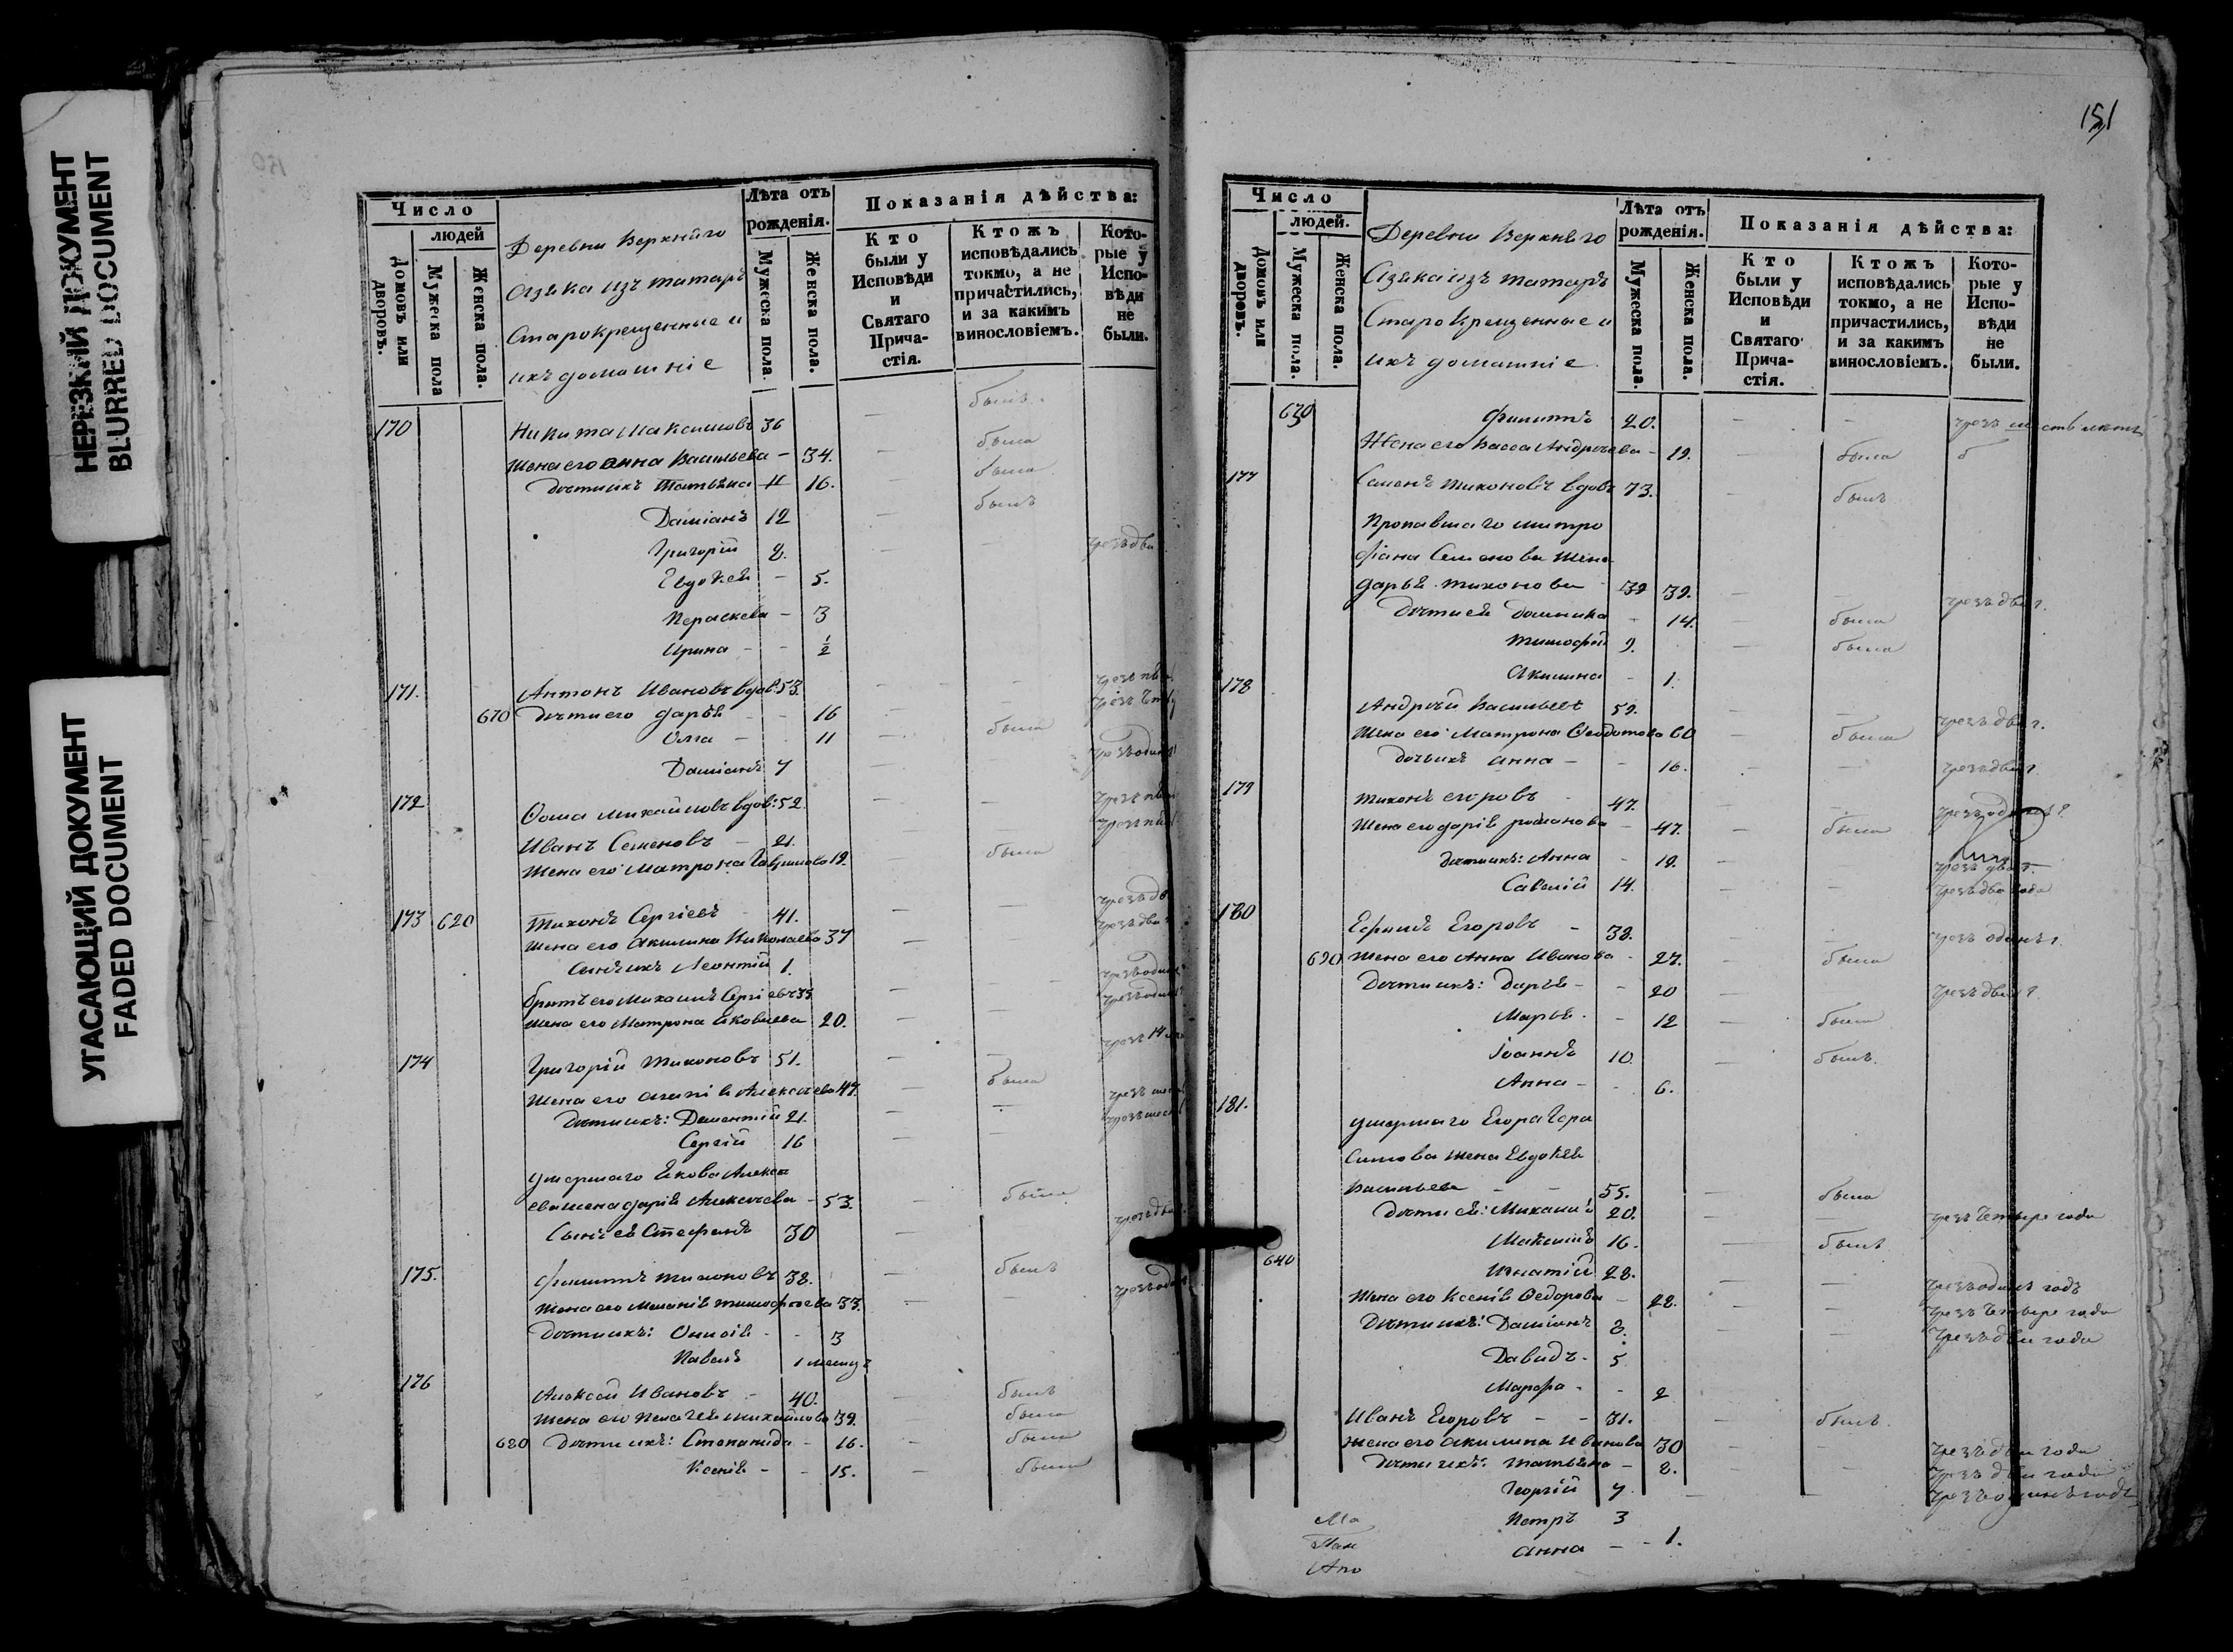 НЕРЕЗКИЙ ДОКУМЕНТ
BLURRED DOCUMENT
УГАСАЮЩИЙ ДОКУМЕНТ
FADED DOCUMENT
Число
людей
Домовъ или дворовъ.
Мужеска пола
Женска пола.
Деревни Верхняго
Азяка изъ татаръ
Старокрещенные и
ихъ домашніе
Лѣта отъ рожденія.
Мужеска пола.
Женска пола.
Показанія дѣйства:
Кто были у Исповѣди и Святаго Причастія.
Ктожъ исповѣдались токмо, а не причастились, и за какимъ винословіемъ.
Которые у Исповѣди не были.
170 Никита Максимовъ 36 — былъ
Жена его Анна Васильева - 34. — была
Дѣти ихъ Татьяна 16. — была
Даміанъ 12 — былъ
Григорій 8. — — чрезъ два
Евдокея - 5.
Параскева - 3
Ирина - - ½
171. Антонъ Ивановъ вдов: 53. — —
670 Дѣти его Дарья - - 16 — —
Олга - 11 — была
Даміанъ 7 —
172 Ѳома Михайловъ вдов: 52. — —
Иванъ Семеновъ - 21.
Жена его Матрона Гаврилова 19. — была
173 620 Тихонъ Сергіевъ - 41. — —
Жена его Акилина Николаева 37 — —
Сынъ ихъ Леонтій 1.
Братъ его Михаилъ Сергіевъ 35 — —
Жена его Матрона Яковлева 20. — —
174 Григорій Тихоновъ 51. — —
Жена его Агапія Алексѣева 47. — была
Дѣти ихъ: Дементій 21. — —
Сергій 16 — —
умершаго Якова Алексе
ева жена Дарія Алексѣева - 53. — была
Сынъ ея Стефанъ 30 —
175. Филиппъ Тихоновъ 38. — былъ
Жена его Меланія Тимофѣева 33. — —
Дѣти ихъ: - - 3
Павелъ 1 месяцъ
176 Алексѣй Ивановъ - 40. — былъ
Жена его Пелагея Михайлова 39. — была
680 Дѣти ихъ: Степанида - 16. — была
Ксенія - - 15. — была
151
Число
людей.
Домовъ или дворовъ.
Мужеска пола.
Женска пола.
Деревни Верхняго
Азяка изъ татаръ
Старокрещенные и
ихъ домашніе
Лѣта отъ рожденія.
Мужеска пола.
Женска пола.
Показанія дѣйства:
Кто были у Исповѣди и Святаго Причастія.
Ктожъ исповѣдались токмо, а не причастились, и за какимъ винословіемъ.
Которые у Исповѣди не были.
630 Филиппъ 20. — — чрезъ шесть лѣтъ
Жена его Васса Андреева - 19. — была
177 Семенъ Тихоновъ вдовъ 73. — былъ
Пропавшаго Митро
фана Семенова жена
Дарья Тихонова 39. — — чрезъ два г.
Дѣти ея Домника - 14. — была
Тимофей 9. — была
Акилина - 1.
178 Андрей Васильевъ 59. — — чрезъ два г.
Жена его Матрона Ѳедотова 60 — была
Дочь ихъ Анна - - 16. — — чрезъ два г.
179 Тихонъ Егоровъ - 47. — — чрезъ одинъ г.
Жена его Дарія Романова - 47. — была
Дѣти ихъ: Анна - 19. — чрезъ два г.
Савелій 14. — — чрезъ два года
180 Ефимъ Егоровъ - 38. — — чрезъ одинъ г.
690 Жена его Анна Иванова - 27. — была
Дѣти ихъ: Дарья - - 20 чрезъ два г.
Марья - - 12 — была
Іоаннъ 10. — былъ.
Анна - - 6.
181. умершаго Егора Гера
симова жена Евдокея
Васильева - - 55. — была
Дѣти ея: Михаилъ 20. — — чрезъ четыре года
Максимъ 16. — былъ
640 Игнатій 28. — — чрезъ одинъ годъ
Жена его Ксенія Ѳедорова - 28. — — чрезъ четыре года
Дѣти ихъ: Даміанъ 8. — — чрезъ два года
Давидъ - 5
Марфа - - 2
Иванъ Егоровъ - - 31. — былъ.
Жена его Акилина Иванова 30 — чрезъ два года
Дѣти ихъ: Татьяна - 8. — — чрезъ два года
Георгій 7 — — чрезъ одинъ годъ
Петръ 3
Анна - - 1.